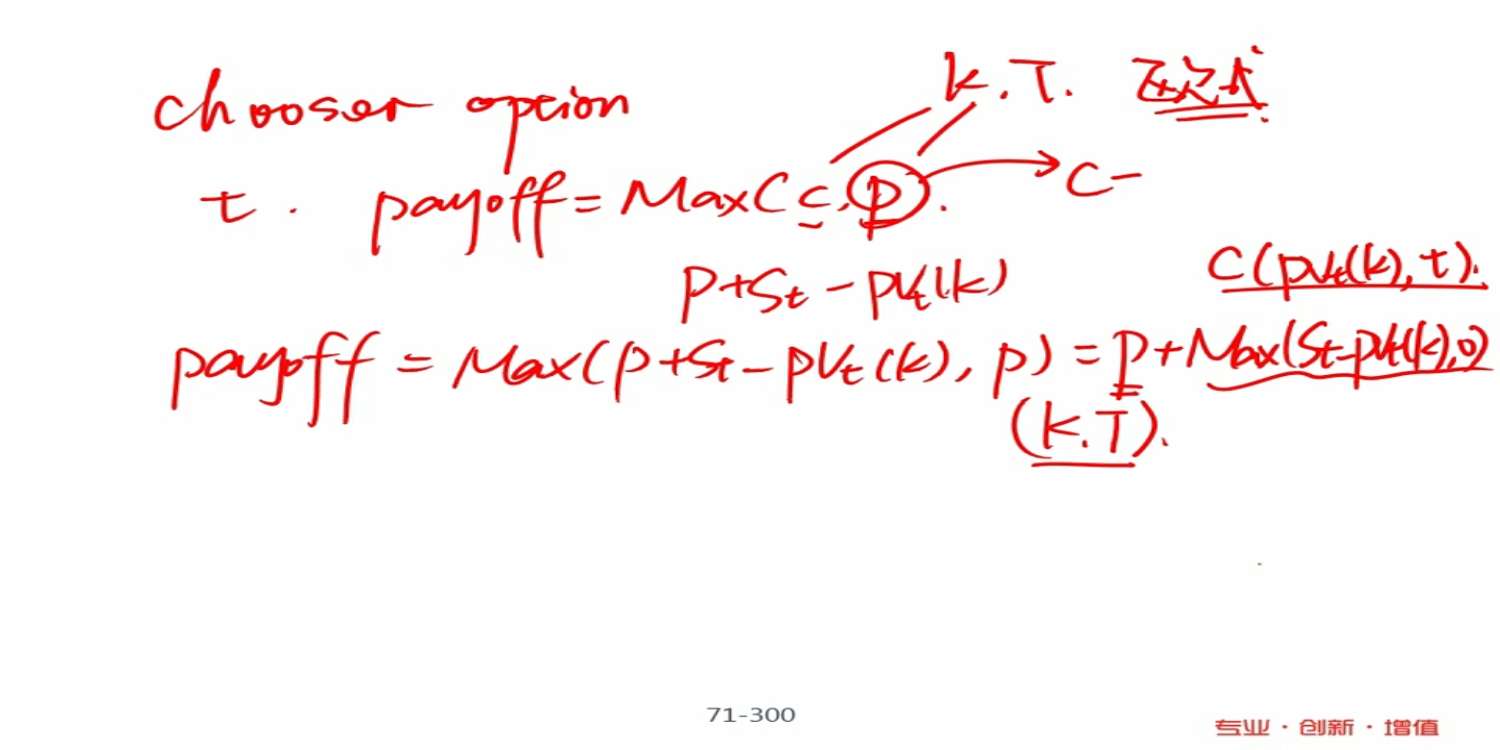 chooser option k.T. 欧式
t. payoff = Max(c, p). → C-
p+St - pVt(k)
C(pVt(k), t).
payoff = Max(p+St - pVt(k), p) = p + Max(St-pVt(k), 0)
(k.T).
71-300
专业·创新·增值